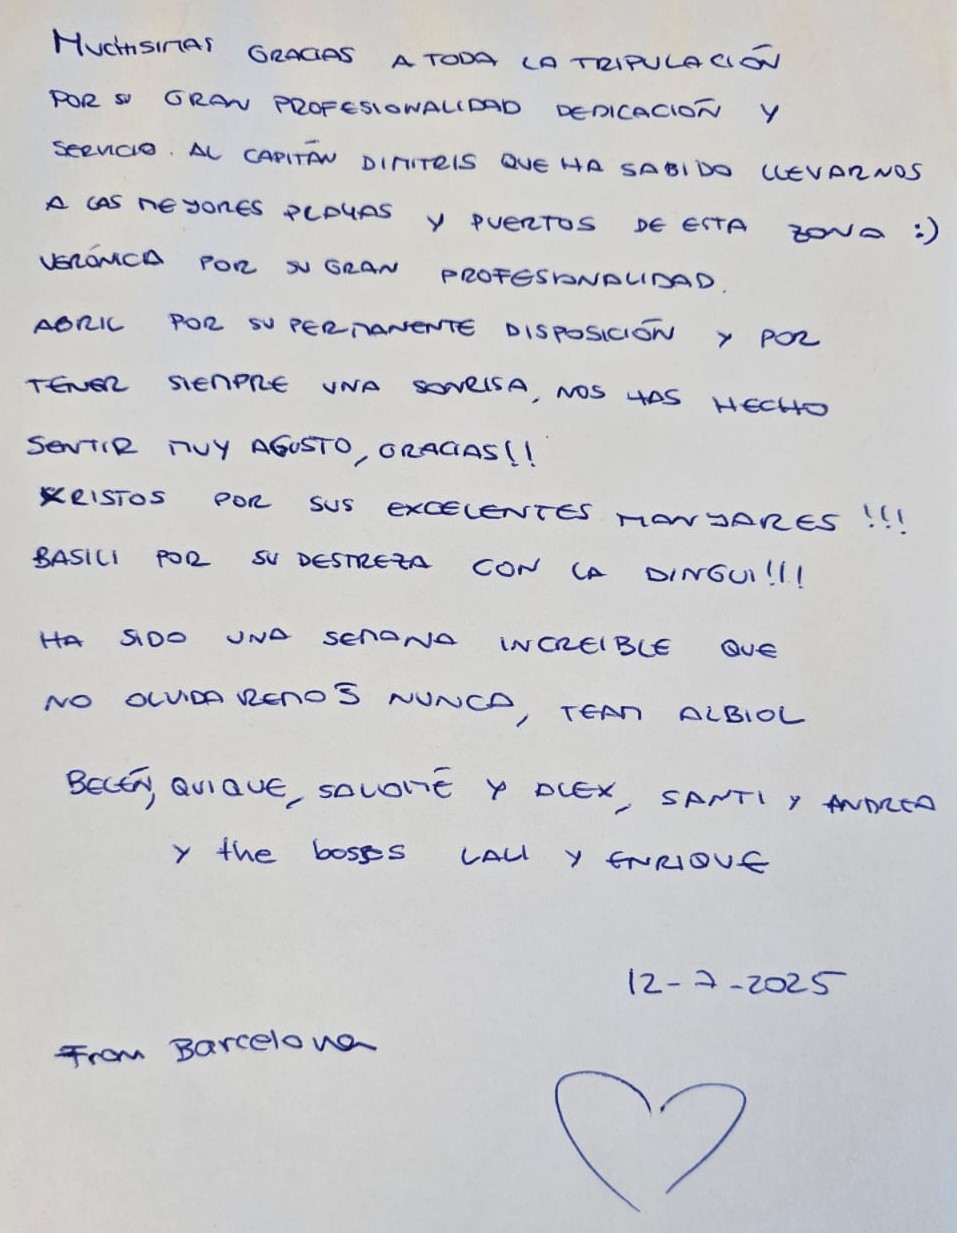 MUCHISIMAS GRACIAS A TODA LA TRIPULACIÓN
POR SU GRAN PROFESIONALIDAD DEDICACIÓN Y
SERVICIO. AL CAPITÁN DIMITRIS QUE HA SABIDO LLEVARNOS
A LAS MEJORES PLAYAS Y PUERTOS DE ESTA ZONA :)
VERÓNICA POR SU GRAN PROFESIONALIDAD.
ABRIL POR SU PERMANENTE DISPOSICIÓN Y POR
TENER SIEMPRE UNA SONRISA, NOS HAS HECHO
SENTIR MUY AGUSTO, GRACIAS!!
KRISTOS POR SUS EXCELENTES MANJARES !!!
BASILI POR SU DESTREZA CON LA DINGUI!!!
HA SIDO UNA SEMANA INCREIBLE QUE
NO OLVIDAREMOS NUNCA, TEAM ALBIOL
BELÉN, QUIQUE, SALOMÉ Y ALEX, SANTI Y ANDREA
Y the bosses LALI Y ENRIQUE
12-7-2025
From Barcelona